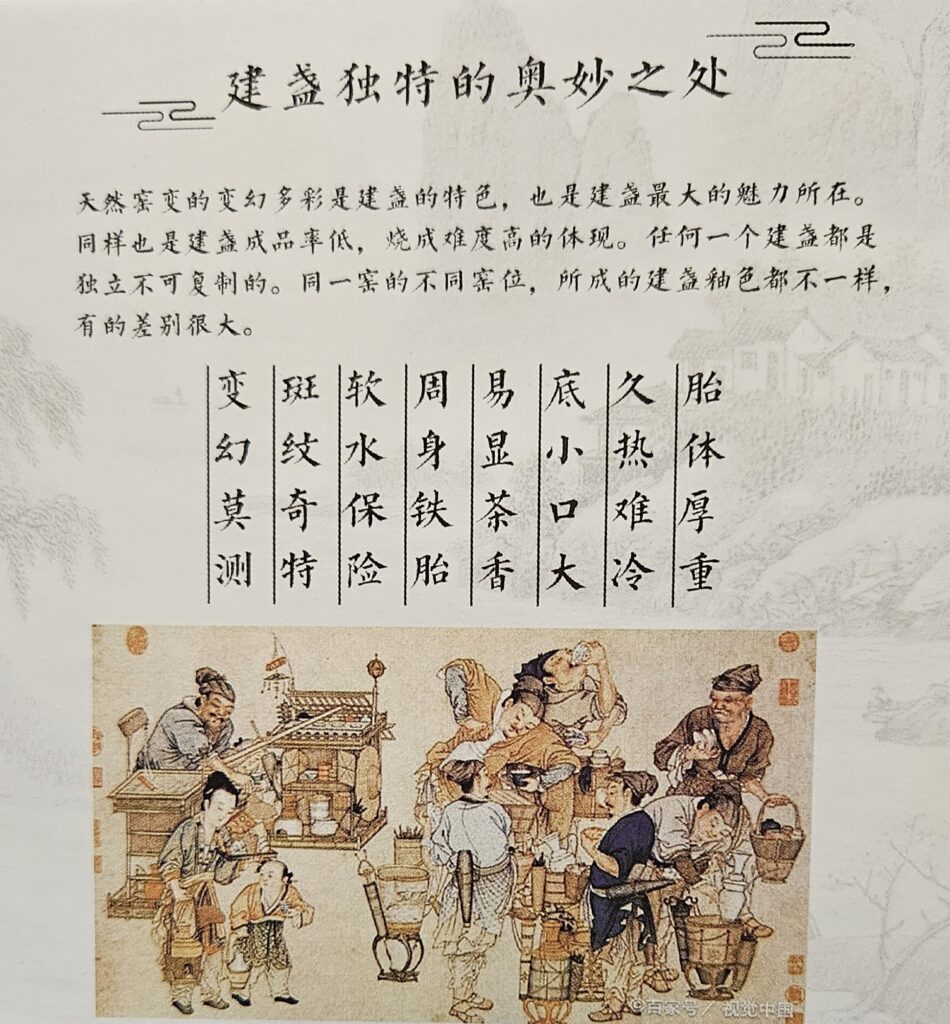 建盏独特的奥妙之处
天然窑变的变幻多彩是建盏的特色，也是建盏最大的魅力所在。
同样也是建盏成品率低，烧成难度高的体现。任何一个建盏都是
独立不可复制的。同一窑的不同窑位，所成的建盏釉色都不一样，
有的差别很大。
胎体厚重
久热难冷
底小口大
易显茶香
周身铁胎
软水保险
斑纹奇特
变幻莫测
©百家号／视觉中国